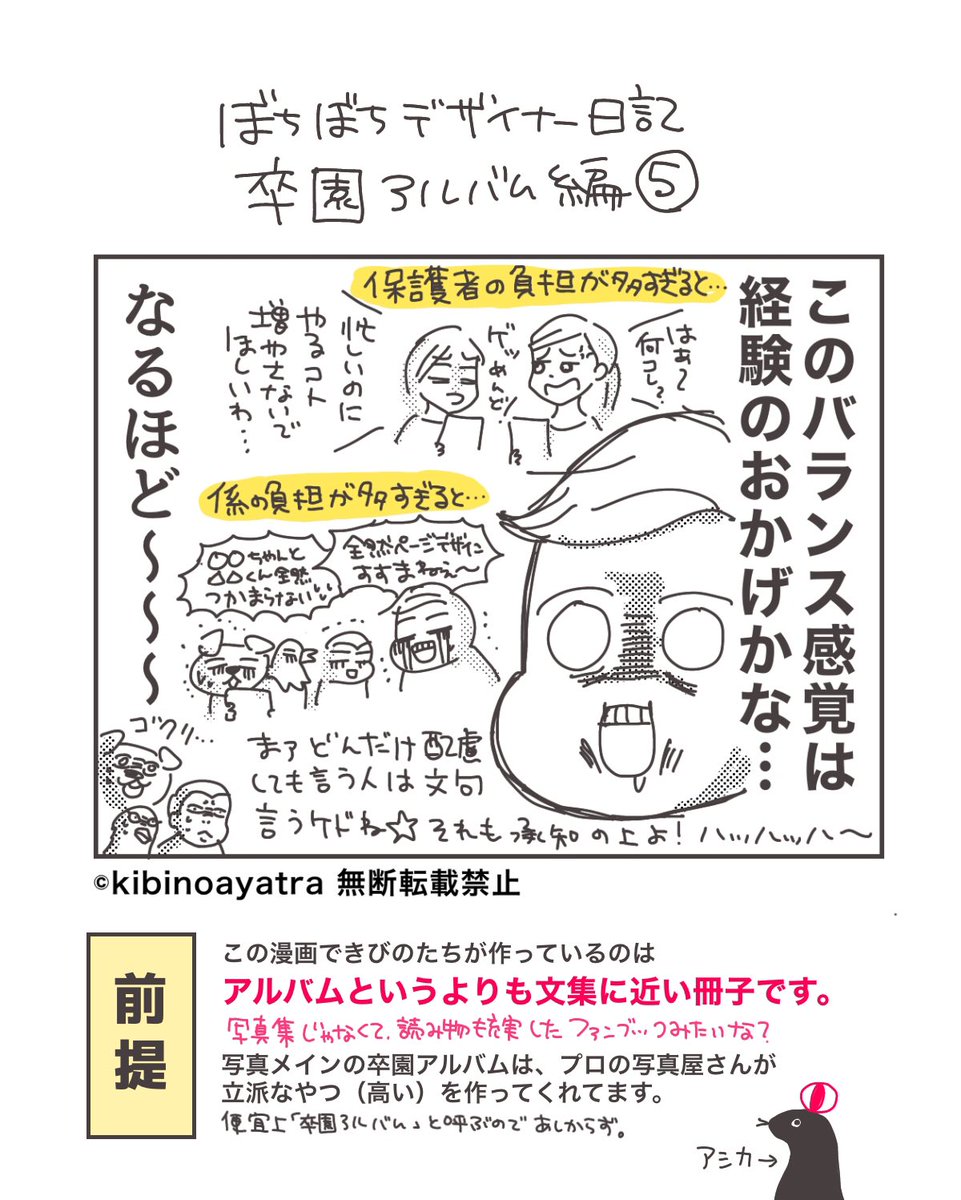 ぼちぼちデザイナー日記
卒園アルバム編⑤
このバランス感覚は
経験のおかげかな…
保護者の負担が多すぎると…
はぁ〜
何コレ?
ゲッめんど
忙しいのに
やるコト
増やさないで
ほしいわ…
なるほど〜〜〜
係の負担が多すぎると…
全然ページデザイン
すすまねぇ〜
○○ちゃんと
△△くん全然
つかまらない…
ゴクリ…
まァどんだけ配慮
しても言う人は文句
言うケドね☆それも承知の上よ!ハッハッハ〜
©kibinoayatra 無断転載禁止
前提
この漫画できびのたちが作っているのは
アルバムというよりも文集に近い冊子です。
写真集じゃなくて、読み物も充実したファンブックみたいな?
写真メインの卒園アルバムは、プロの写真屋さんが
立派なやつ（高い）を作ってくれてます。
便宜上「卒園アルバム」と呼ぶのであしからず。
アシカ→